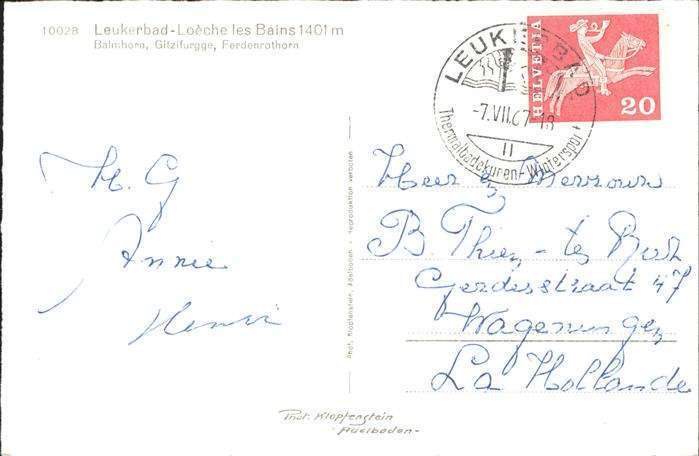 10028 Leukerbad-Loèche les Bains 1401 m
Balmhorn, Gitzifurgge, Ferdenrothorn
H. G
Annie
Henri
Phot. Klopfenstein, Adelboden - Reproduktion verboten
LEUKERBAD
-7.VII.67-18
II
Thermalbadekuren-Wintersport
HELVETIA
20
Heer en Mevrouw
B. Thien - te Bost
Gerdesstraat 47
Wageningen
La Hollande
Phot. Klopfenstein
Adelboden